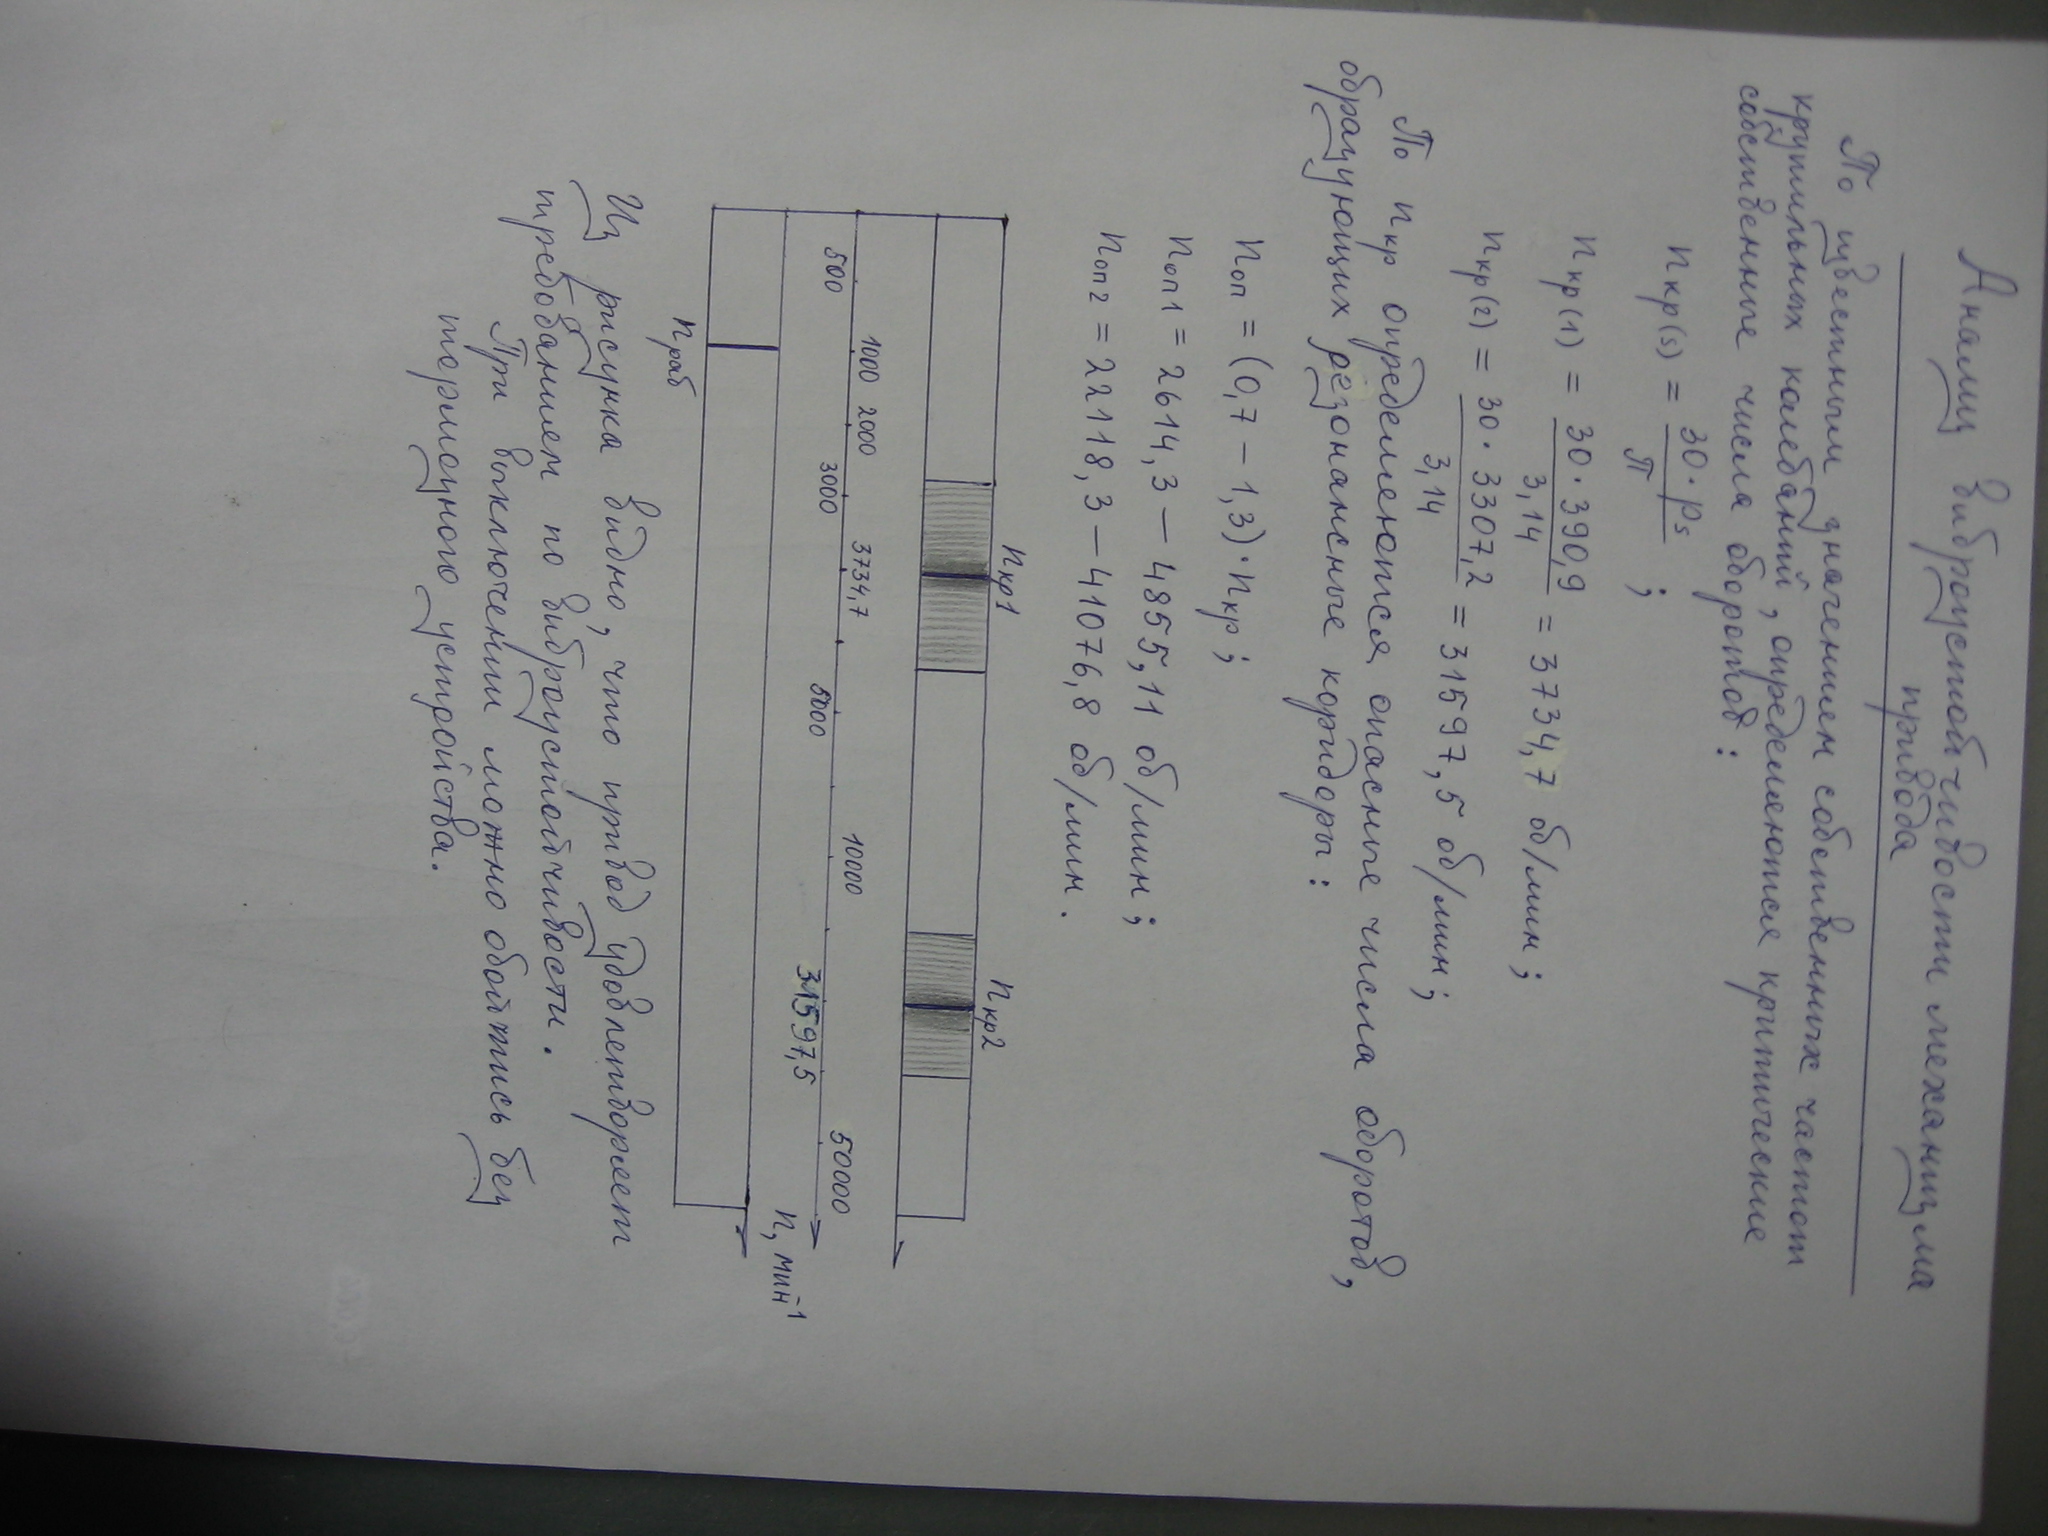 Анализ виброустойчивости механизма
привода
По известным значением собственных частот
крутильных колебаний, определяются критические
собственные числа оборотов:
nкр(s) = 30·ps / π ;
nкр(1) = 30·390,9 / 3,14 = 3734,7 об/мин;
nкр(2) = 30·3307,2 / 3,14 = 31597,5 об/мин;
По nкр определяются опасные числа оборотов,
образующих резонансные коридоры:
nоп = (0,7 – 1,3)·nкр;
nоп1 = 2614,3 – 4855,11 об/мин;
nоп2 = 22118,3 – 41076,8 об/мин.
nкр1 nкр2
500 1000 2000 3000 3734,7 5000 10000 31597,5 50000
n, мин⁻¹
nраб
Из рисунка видно, что привод удовлетворяет
требованием по виброустойчивости.
При выключении можно обойтись без
тормозного устройства.